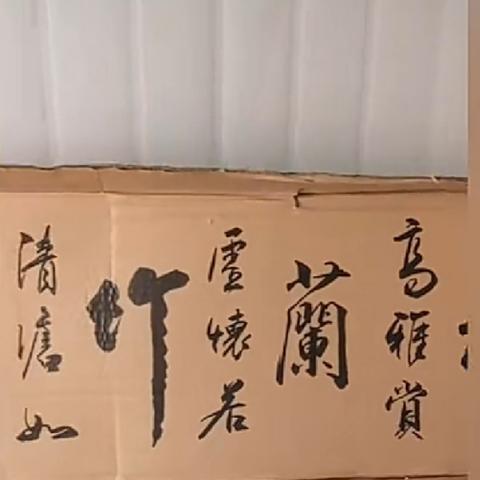 高雅賞
蘭
虛懷若
竹
清澹如